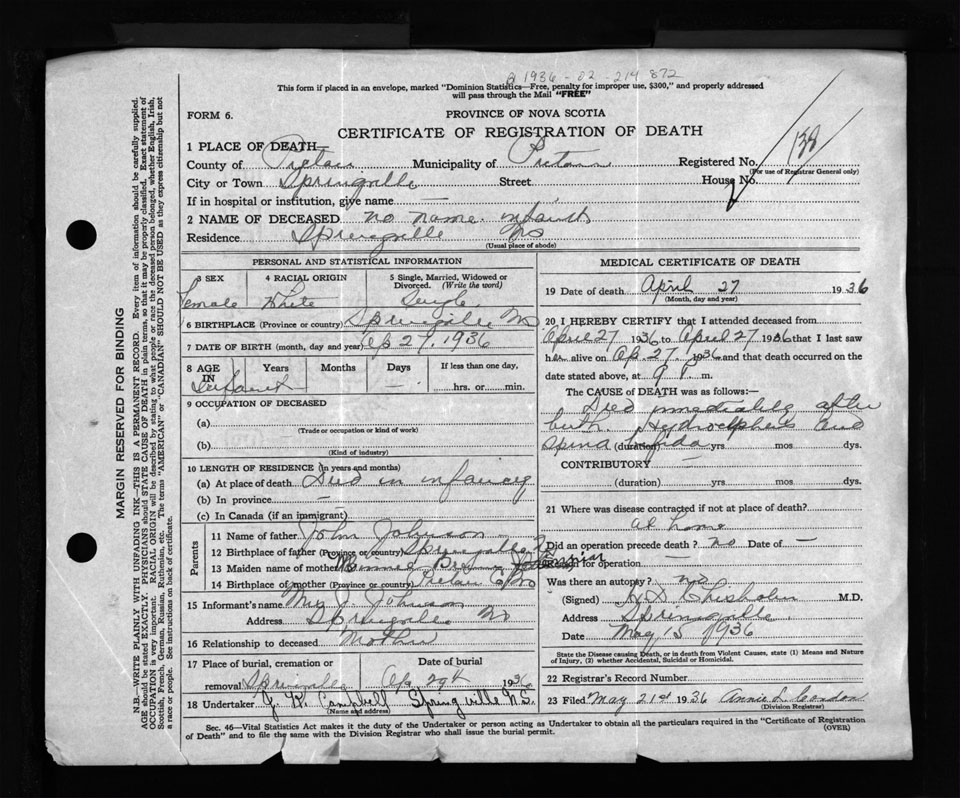 1936-02-214872
This form if placed in an envelope, marked "Dominion Statistics—Free, penalty for improper use, $300," and properly addressed
will pass through the Mail "FREE"
FORM 6.
PROVINCE OF NOVA SCOTIA
CERTIFICATE OF REGISTRATION OF DEATH
1 PLACE OF DEATH—
County of Pictou Municipality of Pictou Registered No. 138
(For use of Registrar General only)
City or Town Springville Street House No.
If in hospital or institution, give name —
2 NAME OF DECEASED no name. infant
Residence Springville NS
(Usual place of abode)
PERSONAL AND STATISTICAL INFORMATION
3 SEX 4 RACIAL ORIGIN 5 Single, Married, Widowed or
Divorced. (Write the word)
Female White Single
6 BIRTHPLACE (Province or country) Springville NS
7 DATE OF BIRTH (month, day and year) Ap 27, 1936
8 AGE IN Years Months Days If less than one day,
Infant — hrs. or min.
9 OCCUPATION OF DECEASED
(a)
(Trade or occupation or kind of work)
(b)
(Kind of industry)
10 LENGTH OF RESIDENCE (in years and months)
(a) At place of death Died in infancy
(b) In province —
(c) In Canada (if an immigrant)
Parents
11 Name of father John Johnson
12 Birthplace of father (Province or country) Springville
13 Maiden name of mother
14 Birthplace of mother (Province or country) Pictou Co NS
15 Informant's name Mrs J. Johnson
Address Springville NS
16 Relationship to deceased Mother
17 Place of burial, cremation or Date of burial
removal Springville Ap 29th 1936
18 Undertaker Campbell Springville N.S.
(Name and address)
MEDICAL CERTIFICATE OF DEATH
19 Date of death April 27 1936
(Month, day and year)
20 I HEREBY CERTIFY that I attended deceased from
April 27 1936 to April 27 1936 that I last saw
her alive on Ap. 27. 1936 and that death occurred on
date stated above, at 9 P. m.
The CAUSE of DEATH was as follows:—
Died immediately after
birth. Hydrocephalus and
Spina bifida (duration) yrs mos dys.
CONTRIBUTORY —
(duration) yrs mos dys.
21 Where was disease contracted if not at place of death?
at home
Did an operation precede death? no Date of —
Reason for operation
Was there an autopsy? no
(Signed) Chisholm M.D.
Address Springville
Date May 15 1936
State the Disease causing Death, or in death from Violent Causes, state (1) Means and Nature
of Injury, (2) whether Accidental, Suicidal or Homicidal.
22 Registrar's Record Number
23 Filed May 21st 1936 Annie L Condon
(Division Registrar)
Sec. 46—Vital Statistics Act makes it the duty of the Undertaker or person acting as Undertaker to obtain all the particulars required in the "Certificate of Registration
of Death" and to file the same with the Division Registrar who shall issue the burial permit.
(OVER)
MARGIN RESERVED FOR BINDING
N.B.—WRITE PLAINLY WITH UNFADING INK—THIS IS A PERMANENT RECORD. Every item of information should be carefully supplied.
AGE should be stated EXACTLY. PHYSICIANS should STATE CAUSE OF DEATH in plain terms, so that it may be properly classified. Exact statement of
OCCUPATION is very important. RACIAL ORIGIN will be described by stating to what people or race the deceased person belonged, whether English, Irish,
Scottish, French, German, Russian, Ruthenian, etc. The terms "AMERICAN" or "CANADIAN" SHOULD NOT BE USED as they express citizenship but not
a race or people. See instructions on back of certificate.